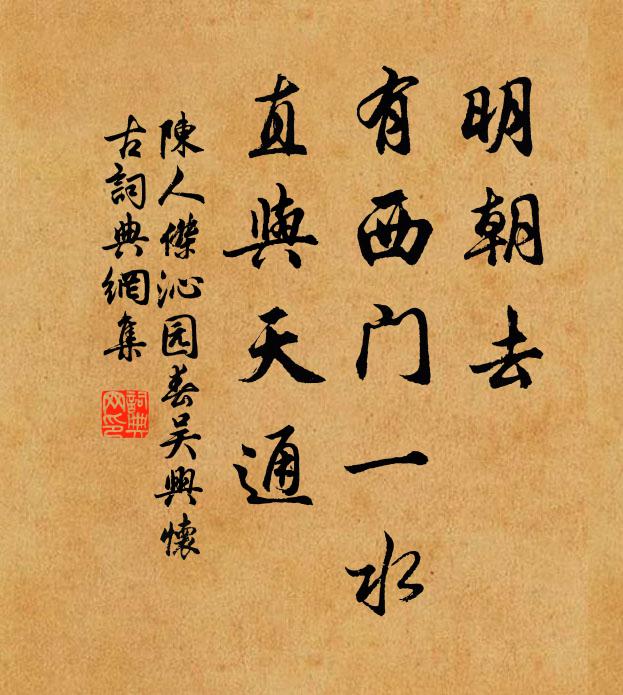 明朝去
有西门一水
直與天通
陳人傑沁园春吴興懷
古詞典網集
詞典
网印